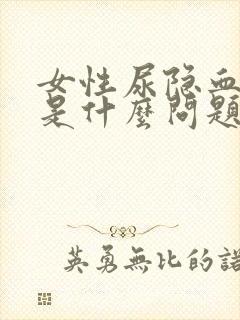 女性尿隐血
是什麼问题
英勇無比的諾